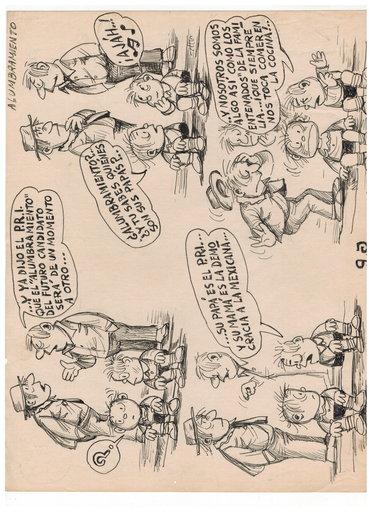 ALUMBRAMIENTO
..Y YA DIJO EL P.R.I.
QUE EL "ALUMBRAMIENTO"
DEL FUTURO CANDIDATO
SERÁ DE UN MOMENTO
A OTRO...
?
¿ALUMBRAMIENTO?..
¿Y TÚ SABES QUIÉNES
SON SUS PAPÁS?..
...SU PAPÁ ES EL PRI...
Y SU MAMÁ ES LA DEMO
CRACIA A LA MEXICANA...
..Y NOSOTROS SOMOS
ALGO ASÍ COMO LOS
DE LA FAMI
LIA....¡QUE SIEMPRE
NOS TOCA COMER EN
LA COCINA!..